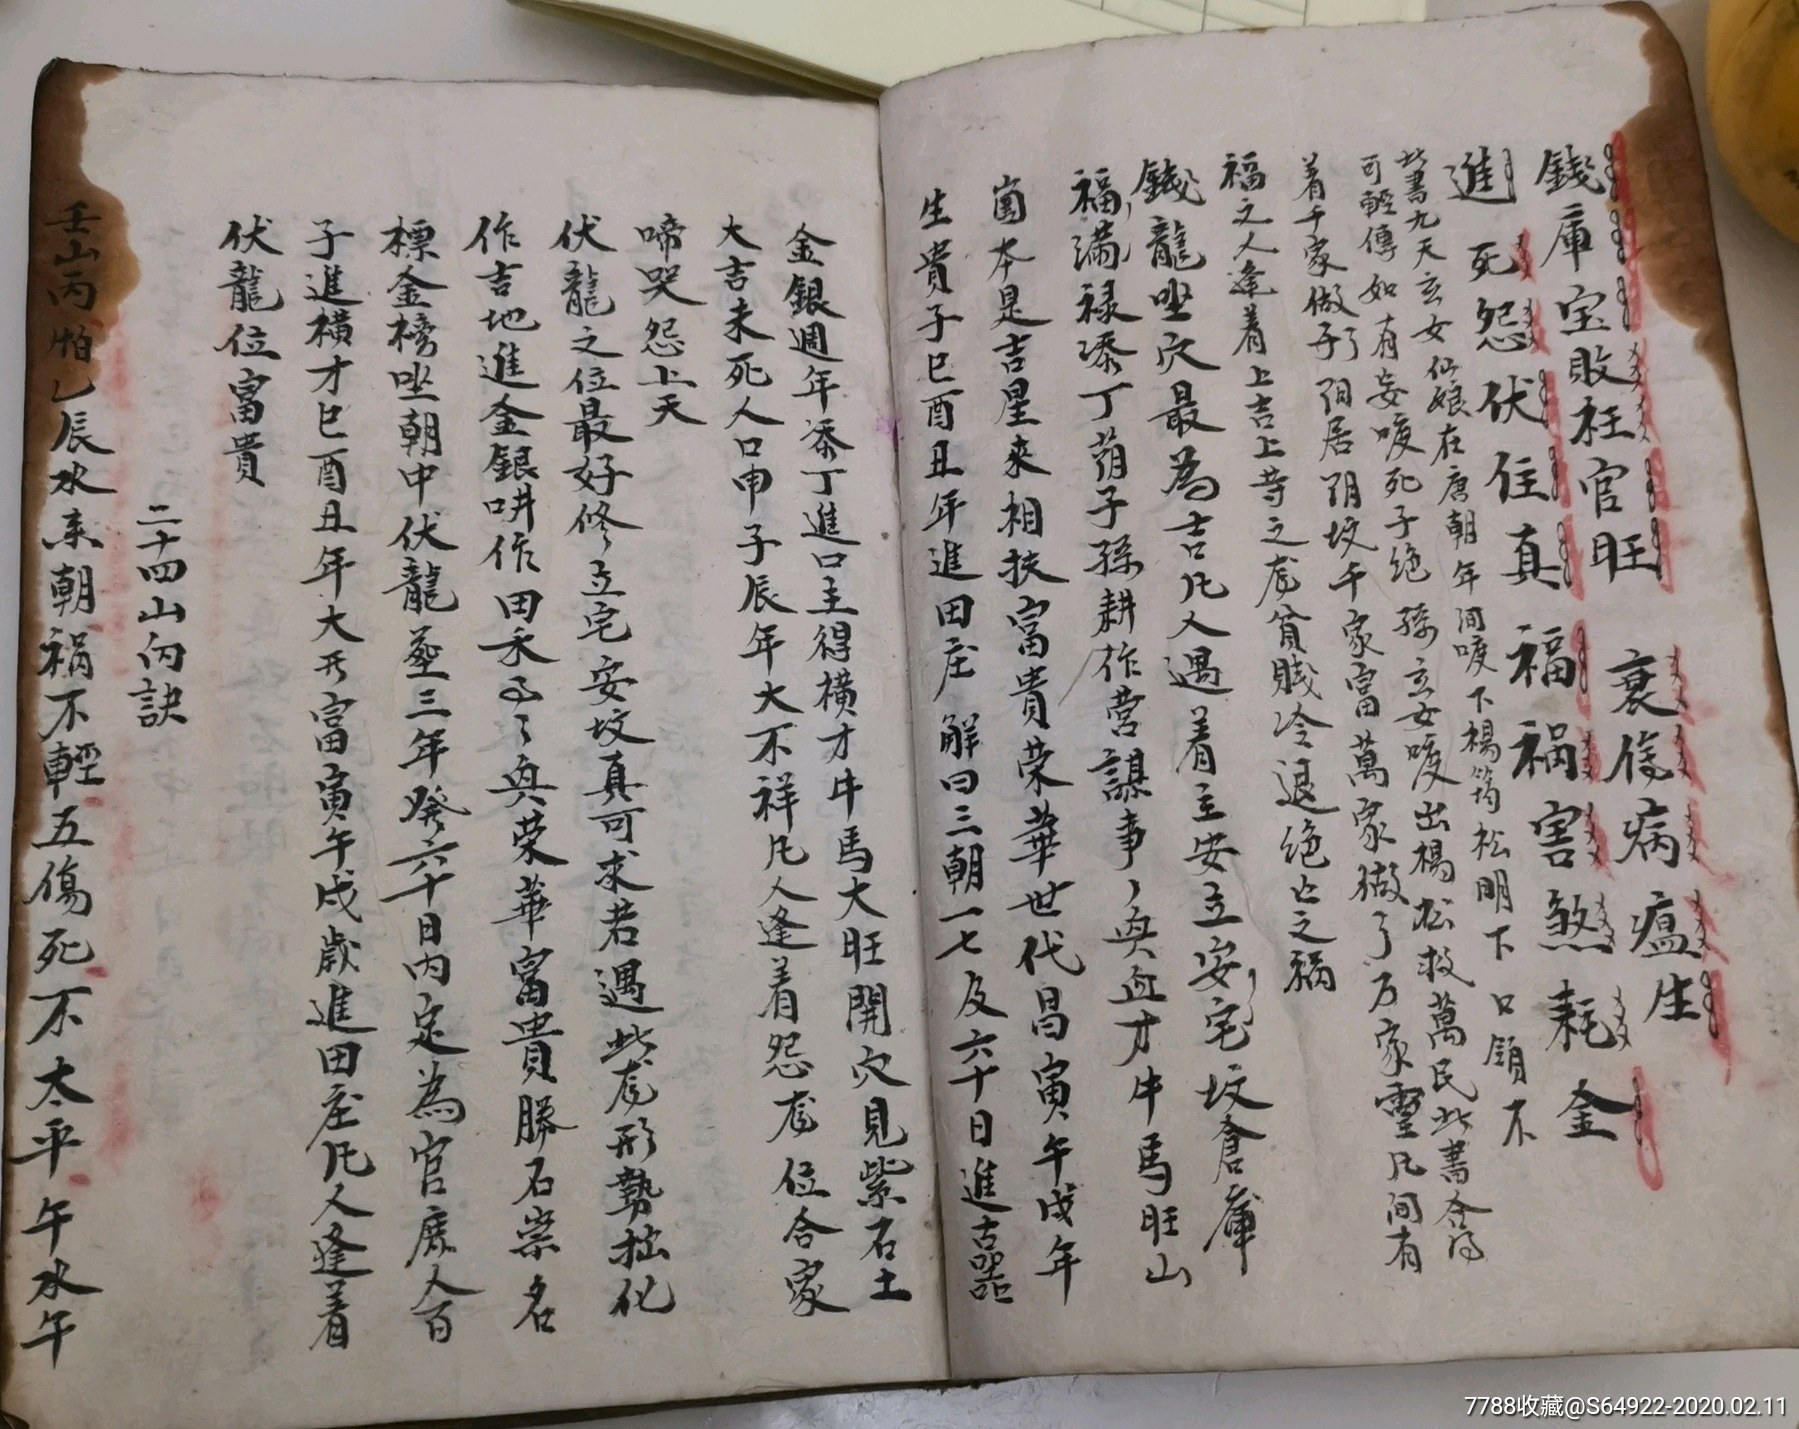 錢庫宝敗枉官旺 衰傷病瘟生
進死怨伏住真 福禍害煞耗金
此書九天玄女仙娘在唐朝年间嗄下楊筠松明下口領不
可輕傳如有妄嗄死子絕孫玄女嗄出楊松救萬民此書合得
着千家做 陽居陰坟千家富萬家做了万家靈凡间有
福之人逢着上吉上等之 貧賤冷退絕亡之禍
錢龍坐穴最為吉凡人遇着主安立安宅坟倉庫
福满禄添丁蔭子孫耕作营謀事々興血才牛馬旺山
崗本是吉星來相扶富貴荣華世代昌寅午戌年
生貴子巳酉丑年進田庄解曰三朝一七及六十日進古器
金銀週年添丁進口主得横才牛馬大旺開穴見紫石土
大吉未死人口申子辰年大不祥凡人逢着怨 位合家
啼哭怨上天
伏龍之位最好修立宅安坟真可求若遇此 形势拙化
作吉地進金銀畊作田禾 興荣華富貴勝石崇名
標金榜坐朝中伏龍塟三年發六十日内定為官庶人百
子進横才巳酉丑年大 富寅午戌歲進田庄凡人逢着
伏龍位富貴
二十四山内訣
壬山丙怕乙辰水来朝禍不輕五傷死不太平午水午
7788收藏@S64922-2020.02.11